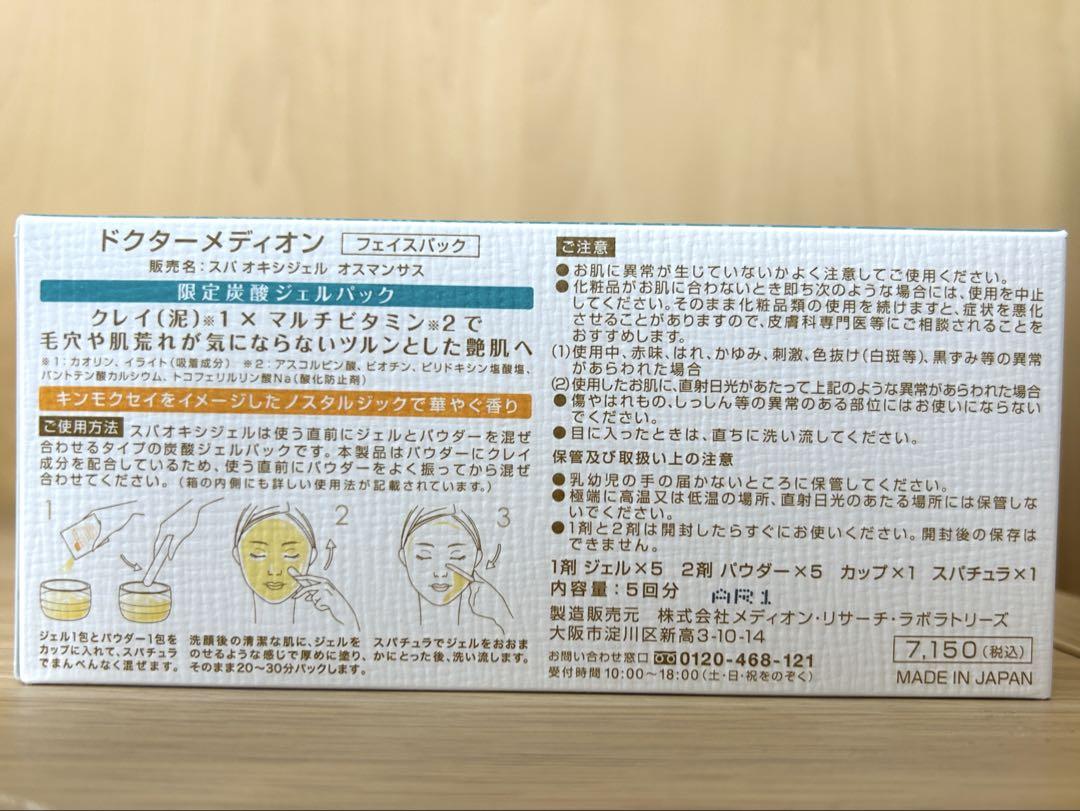 ドクターメディオン フェイスパック
販売名:スパ オキシジェル オスマンサス
限定炭酸ジェルパック
クレイ(泥)※1×マルチビタミン※2で
毛穴や肌荒れが気にならないツルンとした艶肌へ
※1:カオリン、イライト(吸着成分) ※2:アスコルビン酸、ビオチン、ピリドキシン塩酸塩、
パントテン酸カルシウム、トコフェリルリン酸Na(酸化防止剤)
キンモクセイをイメージしたノスタルジックで華やぐ香り
ご使用方法 スパオキシジェルは使う直前にジェルとパウダーを混ぜ
合わせるタイプの炭酸ジェルパックです。本製品はパウダーにクレイ
成分を配合しているため、使う直前にパウダーをよく振ってから混ぜ
合わせてください。(箱の内側にも詳しい使用法が記載されています。)
1
2
3
ジェル1包とパウダー1包を
カップに入れて、スパチュラ
でまんべんなく混ぜます。
洗顔後の清潔な肌に、ジェルを
のせるような感じで厚めに塗り、
そのまま20〜30分パックします。
スパチュラでジェルをおおま
かにとった後、洗い流します。
ご注意
●お肌に異常が生じていないかよく注意してご使用ください。
●化粧品がお肌に合わないとき即ち次のような場合には、使用を中止
してください。そのまま化粧品類の使用を続けますと、症状を悪化
させることがありますので、皮膚科専門医等にご相談されることを
おすすめします。
(1)使用中、赤味、はれ、かゆみ、刺激、色抜け(白斑等)、黒ずみ等の異常
があらわれた場合
(2)使用したお肌に、直射日光があたって上記のような異常があらわれた場合
●傷やはれもの、しっしん等の異常のある部位にはお使いにならない
でください。
●目に入ったときは、直ちに洗い流してください。
保管及び取扱い上の注意
●乳幼児の手の届かないところに保管してください。
●極端に高温又は低温の場所、直射日光のあたる場所には保管しな
いでください。
●1剤と2剤は開封したらすぐにお使いください。開封後の保存は
できません。
1剤 ジェル×5 2剤 パウダー×5 カップ×1 スパチュラ×1
内容量:5回分 AR1
製造販売元 株式会社メディオン・リサーチ・ラボラトリーズ
大阪市淀川区新高3-10-14
お問い合わせ窓口 0120-468-121
受付時間 10:00〜18:00(土・日・祝をのぞく)
7,150(税込)
MADE IN JAPAN